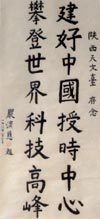 陕西天文臺 存念
建好中國授時中心
攀登世界科技高峰
嚴濟慈 題